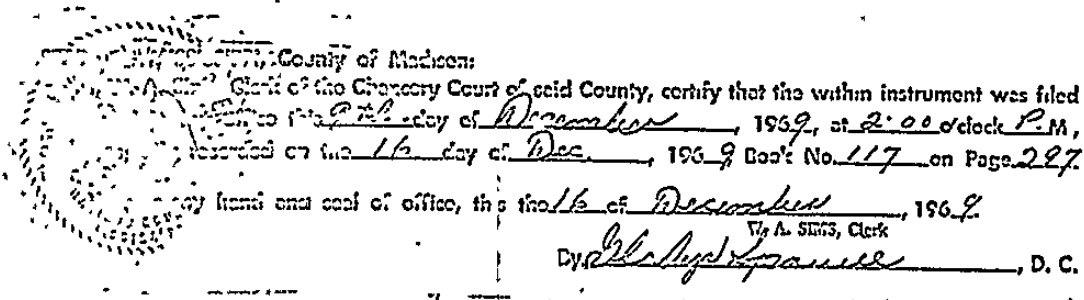 County of Madison:
Clerk of the Chancery Court of said County, certify that the within instrument was filed
this 9th day of December, 1969, at 2:00 o'clock P.M.,
recorded on the 16 day of Dec., 1969 Book No. 117 on Page 297
my hand and seal of office, this the 16 of December, 1969.
W. A. SIMS, Clerk
By Gladys Spruill, D. C.